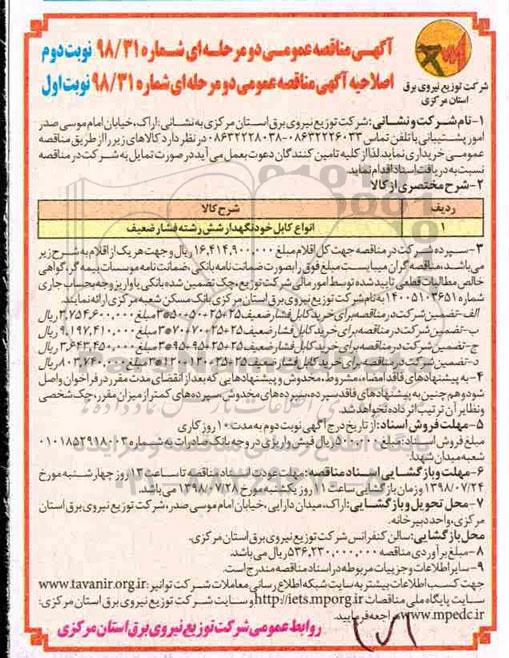 آگهی مناقصه عمومی دو مرحله ای شماره ۹۸/۳۱ نوبت دوم
اصلاحیه آگهی مناقصه عمومی دو مرحله ای شماره ۹۸/۳۱ نوبت اول
شرکت توزیع نیروی برق
استان مرکزی
۱-نام شرکت و نشانی: شرکت توزیع نیروی برق استان مرکزی به نشانی: اراک، خیابان امام موسی صدر
امور پشتیبانی با تلفن تماس ۰۸۶۳۲۲۲۶۰۳۳-۰۸۶۳۲۲۲۸۰۳۸ در نظر دارد کالاهای زیر را از طریق مناقصه
عمومی خریداری نماید لذا از کلیه تامین کنندگان دعوت بعمل می آید در صورت تمایل به شرکت در مناقصه
نسبت به دریافت اسناد اقدام نماید.
۲-شرح مختصری از کالا
ردیف شرح کالا
۱ انواع کابل خودنگهدار شش رشته فشار ضعیف
۳-سپرده شرکت در مناقصه جهت کل اقلام مبلغ ۱۶,۴۱۴,۹۰۰,۰۰۰ ریال و جهت هر یک از اقلام به شرح زیر
می باشد، مناقصه گران میبایست مبلغ فوق را بصورت ضمانت نامه بانکی، ضمانت نامه موسسات بیمه گر، گواهی
خالص مطالبات قطعی تایید شده توسط امور مالی شرکت توزیع، چک تضمین شده بانکی یا واریز وجه بحساب جاری
شماره ۱۴۰۰۵۱۰۳۶۵۱ به نام شرکت توزیع نیروی برق استان مرکزی بانک مسکن شعبه مرکزی ارائه نمایند.
الف-تضمین شرکت در مناقصه برای خرید کابل فشار ضعیف ۲۵+۲۵+۵۰+۵۰*۳ مبلغ ۳,۷۵۴,۶۰۰,۰۰۰ ریال
ب-تضمین شرکت در مناقصه برای خرید کابل فشار ضعیف ۲۵+۲۵+۷۰+۷۰*۳ مبلغ ۹,۱۹۷,۴۱۰,۰۰۰ ریال
ج-تضمین شرکت در مناقصه برای خرید کابل فشار ضعیف ۲۵+۲۵+۹۵+۹۵*۳ مبلغ ۳,۶۴۳,۴۵۰,۰۰۰ ریال
د-تضمین شرکت در مناقصه برای خرید کابل فشار ضعیف ۲۵+۲۵+۱۲۰+۱۲۰*۳ مبلغ ۸۰۳,۷۴۰,۰۰۰ ریال
۴-به پیشنهادهای فاقد امضاء، مشروط، مخدوش و پیشنهادهایی که بعد از انقضای مدت مقرر در فراخوان واصل
شود و هم چنین به پیشنهادهای فاقد سپرده، سپرده های مخدوش، سپرده های کمتر از میزان مقرر، چک شخصی
و نظایر آن ترتیب اثر داده نخواهد شد.
۵-مهلت فروش اسناد: از تاریخ درج آگهی نوبت دوم به مدت ۱۰ روز کاری
مبلغ فروش اسناد: مبلغ ۵۰۰,۰۰۰ ریال فیش واریزی در وجه بانک صادرات به شماره ۰۱۰۱۸۵۲۹۱۸۰۰۳
شعبه میدان شهدا.
۶-مهلت و بازگشایی اسناد مناقصه: مهلت عودت اسناد مناقصه تا ساعت ۱۳ روز چهارشنبه مورخ
۱۳۹۸/۰۷/۲۴ و زمان بازگشایی ساعت ۱۱ روز یکشنبه مورخ ۱۳۹۸/۰۷/۲۸ می باشد.
۷-محل تحویل و بازگشایی: اراک، میدان دارایی، خیابان امام موسی صدر، شرکت توزیع نیروی برق استان
مرکزی، واحد دبیرخانه.
محل بازگشایی: سالن کنفرانس شرکت توزیع نیروی برق استان مرکزی.
۸-مبلغ برآوردی مناقصه ۵۳۶,۲۳۰,۰۰۰,۰۰۰ ریال می باشد.
۹-سایر اطلاعات و جزییات مربوطه در اسناد مناقصه مندرج است.
جهت کسب اطلاعات بیشتر به سایت شبکه اطلاع رسانی معاملات شرکت توانیر: www.tavanir.org.ir
سایت پایگاه ملی مناقصات http://iets.mporg.ir و سایت شرکت توزیع نیروی برق استان مرکزی:
www.mpedc.ir مراجعه فرمایید.
روابط عمومی شرکت توزیع نیروی برق استان مرکزی